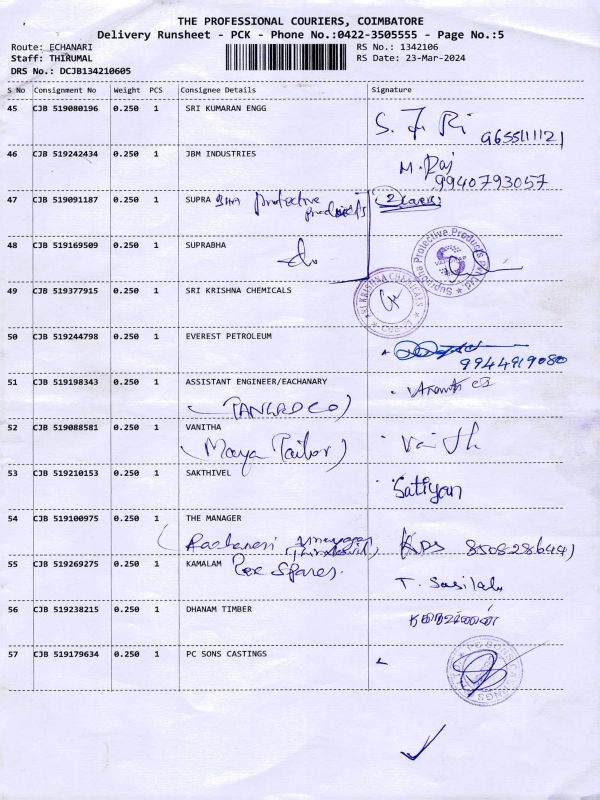 THE PROFESSIONAL COURIERS, COIMBATORE
Delivery Runsheet - PCK - Phone No.:0422-3505555 - Page No.:5
Route: ECHANARI
RS No.: 1342106
Staff: THIRUMAL
RS Date: 23-Mar-2024
DRS No.: DCJB134210605
S No Consignment No Weight PCS Consignee Details Signature
45 CJB 519080196 0.250 1 SRI KUMARAN ENGG
9655111121
46 CJB 519242434 0.250 1 JBM INDUSTRIES M. Raj
9940793057
47 CJB 519091187 0.250 1 SUPRA BHA Protective
Products
48 CJB 519169509 0.250 1 SUPRABHA
Suprabha Protective Products Pvt Ltd
49 CJB 519377915 0.250 1 SRI KRISHNA CHEMICALS
KRISHNA CHEMICALS
50 CJB 519244798 0.250 1 EVEREST PETROLEUM
9944919080
51 CJB 519198343 0.250 1 ASSISTANT ENGINEER/EACHANARY
52 CJB 519088581 0.250 1 VANITHA
(Maya Tailor)
53 CJB 519210153 0.250 1 SAKTHIVEL Satiyan
54 CJB 519100975 0.250 1 THE MANAGER
55 CJB 519269275 0.250 1 KAMALAM Spares.
56 CJB 519238215 0.250 1 DHANAM TIMBER
57 CJB 519179634 0.250 1 PC SONS CASTINGS